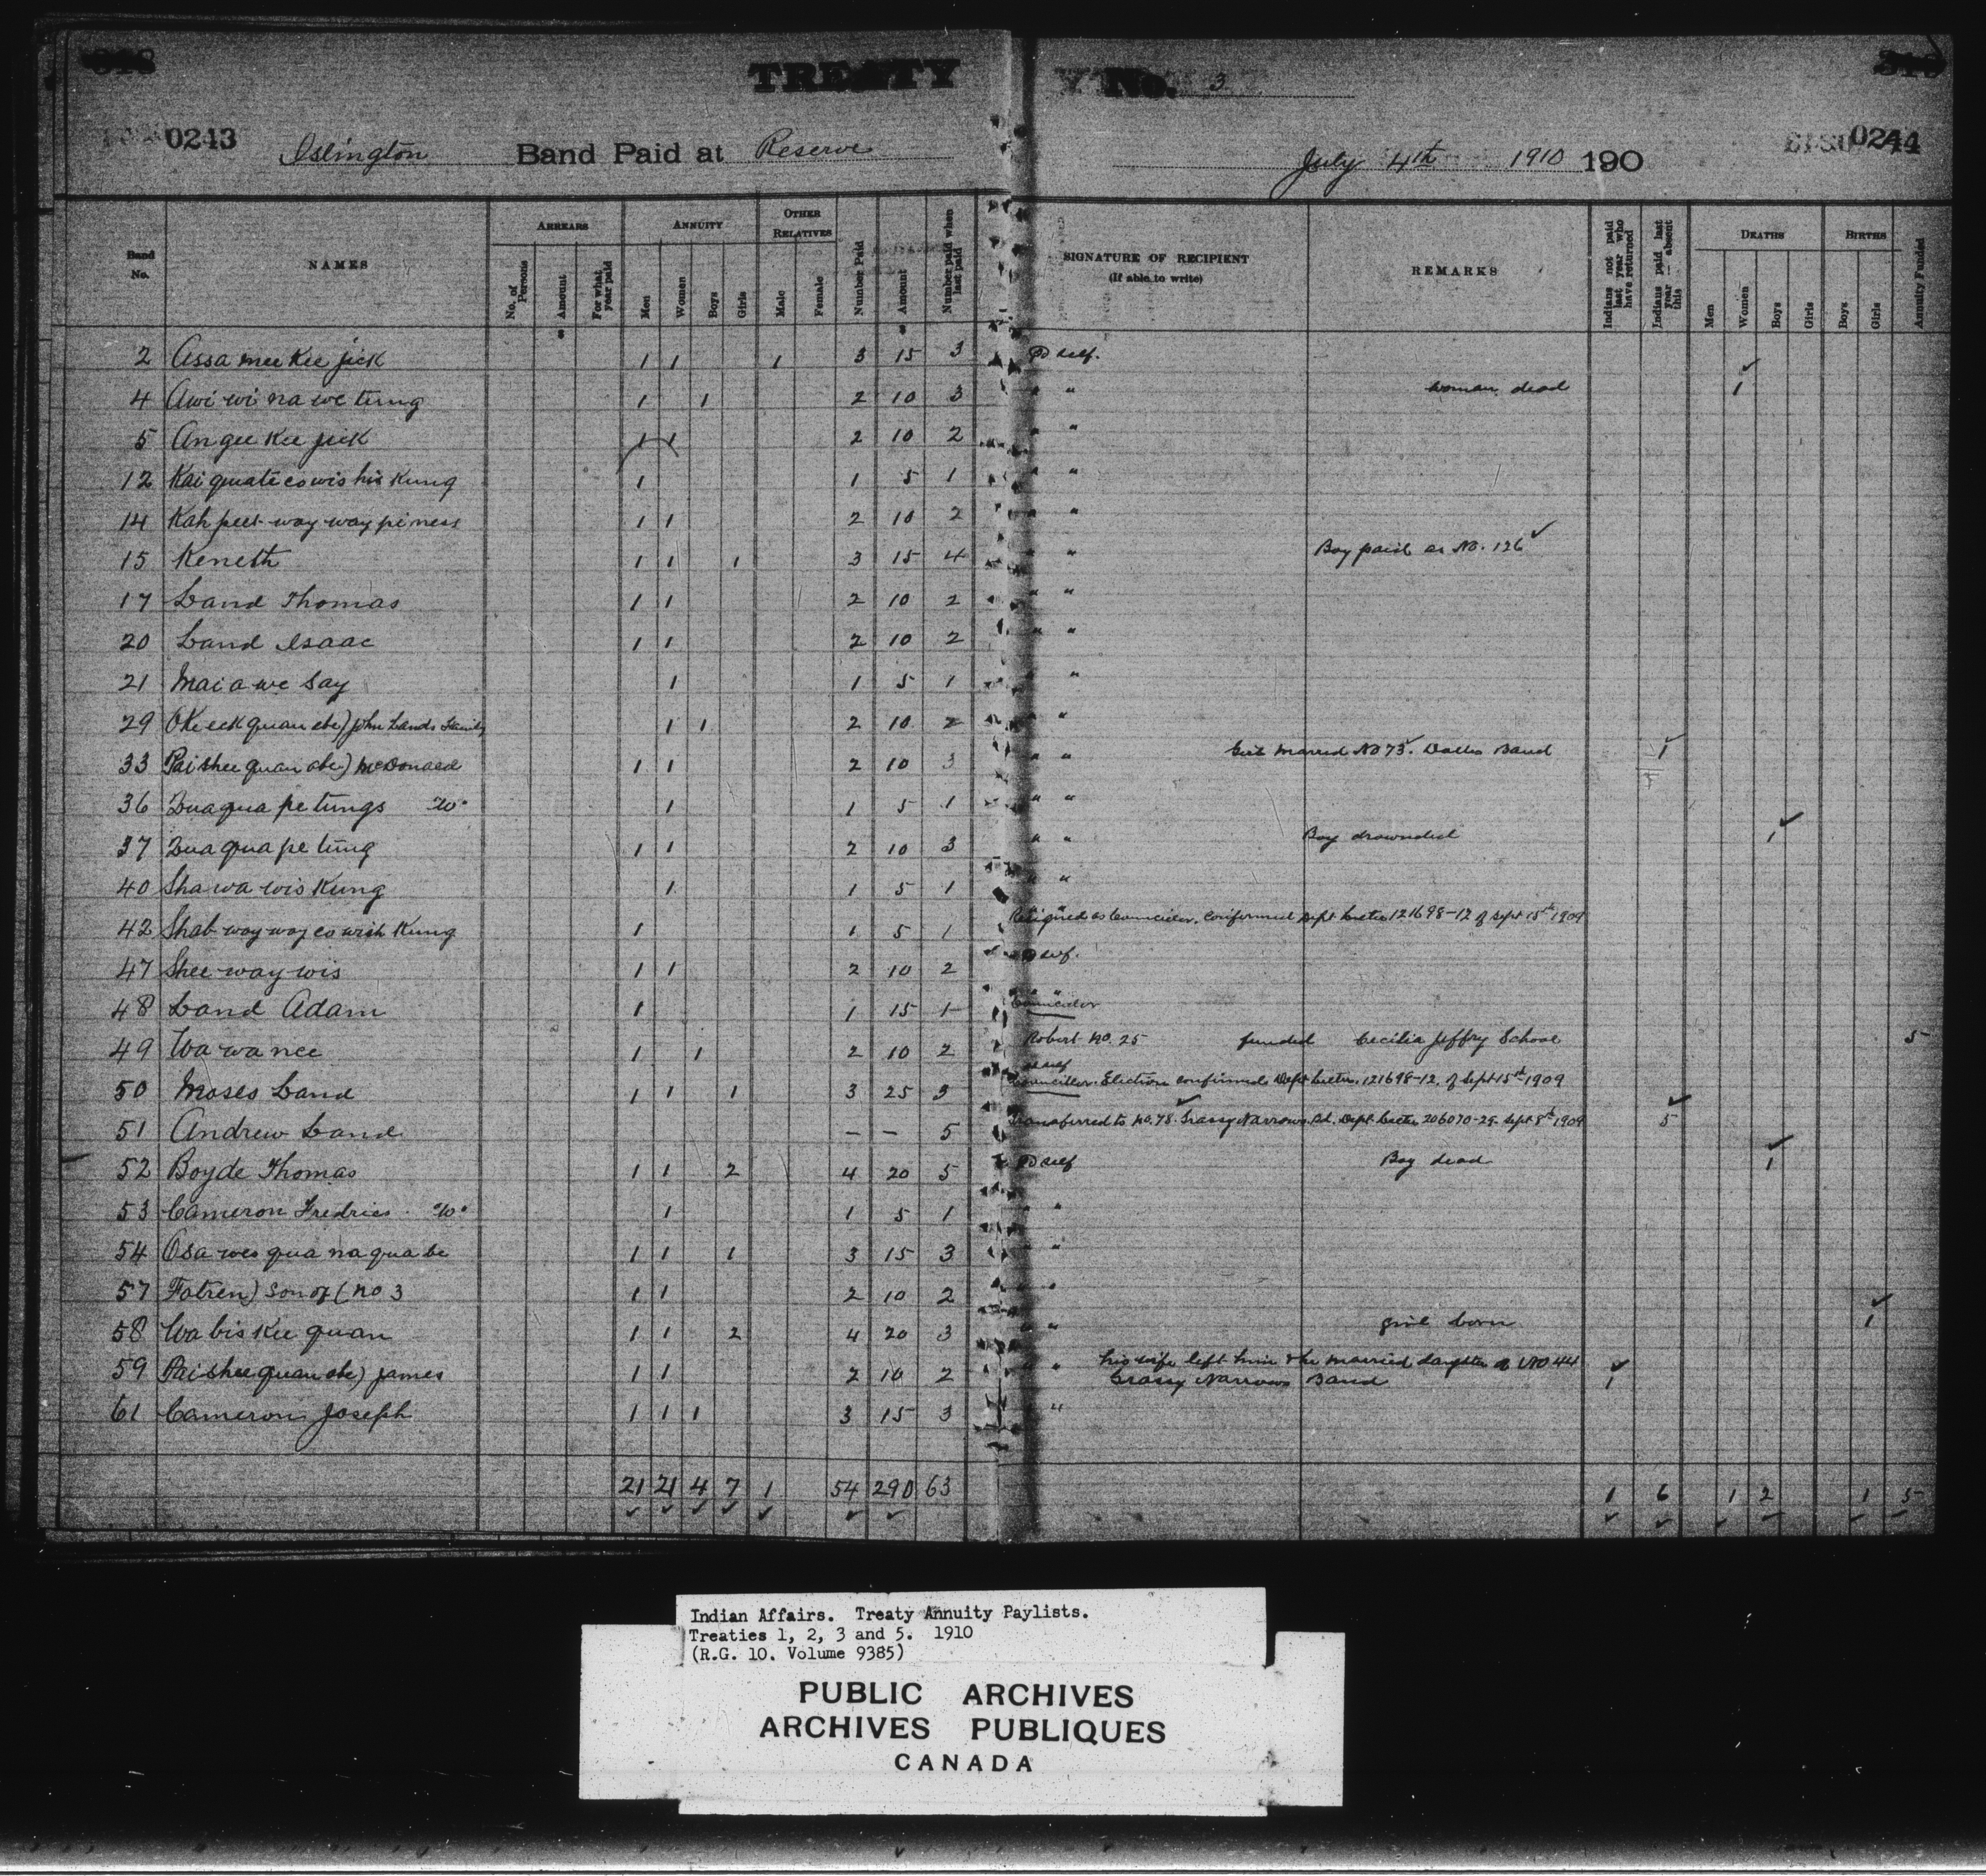 TREATY No. 3
0243 0244
Islington Band Paid at Reserve July 4th 1910 190
Band No. NAMES ARREARS ANNUITY OTHER RELATIVES Number Paid Amount Number paid when last paid SIGNATURE OF RECIPIENT (If able to write) REMARKS Indians not paid last year who have returned Indians paid last year — absent this DEATHS BIRTHS Annuity Funded
No. of Persons Amount For what year paid Men Women Boys Girls Male Female Men Women Boys Girls Boys Girls
2 Assa mee Kee jick 1 1 1 3 15 3 Pd self.
4 Awi wi na we tung 1 1 2 10 3 " " woman dead 1
5 An gee Kee jick 1 1 2 10 2 " "
12 Kai quate co wis his Kung 1 1 5 1 " "
14 Kah peet-way way pe ness 1 1 2 10 2 " "
15 Keneth 1 1 1 3 15 4 " " Boy paid as No. 126
17 Land Thomas 1 1 2 10 2 " "
20 Land Isaac 1 1 2 10 2 " "
21 Mai a we Say 1 1 5 1 " "
29 OKe eck quan abe) John Lands Family 1 1 2 10 2 " "
33 Pai shee quan abe) McDonald 1 1 2 10 3 " " Girl married No 73. Dalles Band 1
36 Zuaqua pe tungs Wo 1 1 5 1 " "
37 Zua qua pe tung 1 1 2 10 3 " " Boy drownded 1
40 Sha wa wis Kung 1 1 5 1 " "
42 Shab way way co wish Kung 1 1 5 1 Resigned as Councilor. Confirmed Dept Letter 121698-12 of Sept 15th 1909
47 Shee way wis 1 1 2 10 2 Pd self.
48 Land Adam 1 1 15 1 " " Councilor
49 Wa wa nee 1 1 2 10 2 Robert No. 25 funded Cecilia Jeffry School 5
50 Moses Land 1 1 1 3 25 3 Pd self Councillor. Election confirmed Dept Letter. 121698-12. of Sept 15th 1909
51 Andrew Land — — 5 Transferred to No. 78. Grassy Narrows Bd. Dept Letter 206070-29. Sept 8th 1909 5
52 Boyde Thomas 1 1 2 4 20 5 Pd self Boy dead 1
53 Cameron Fredric Wo 1 1 5 1 " "
54 Osa wes qua na qua be 1 1 1 3 15 3 " "
57 Fatren) son of (No 3 1 1 2 10 2 " "
58 Wa bis Kee quan 1 1 2 4 20 3 " " girl born 1
59 Pai shee quan abe) James 1 1 2 10 2 " " his wife left him & he married daughter of No 44
Grassy Narrows Band 1
61 Cameron Joseph 1 1 1 3 15 3 " "
21 21 4 7 1 54 290 63 1 6 1 2 1 5
Indian Affairs. Treaty Annuity Paylists.
Treaties 1, 2, 3 and 5. 1910
(R.G. 10. Volume 9385)
PUBLIC ARCHIVES
ARCHIVES PUBLIQUES
CANADA